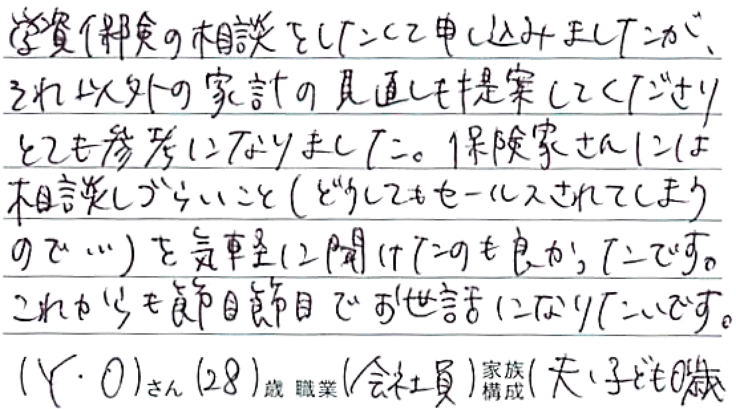 学資保険の相談をしたくて申し込みましたが、
それ以外の家計の見直しも提案してくださり
とても参考になりました。保険家さんには
相談しづらいこと(どうしてもセールスされてしまう
ので…)を気軽に聞けたのも良かったです。
これからも節目節目でお世話になりたいです。
(Y・O)さん(28)歳 職業(会社員)家族構成(夫、子ども0歳